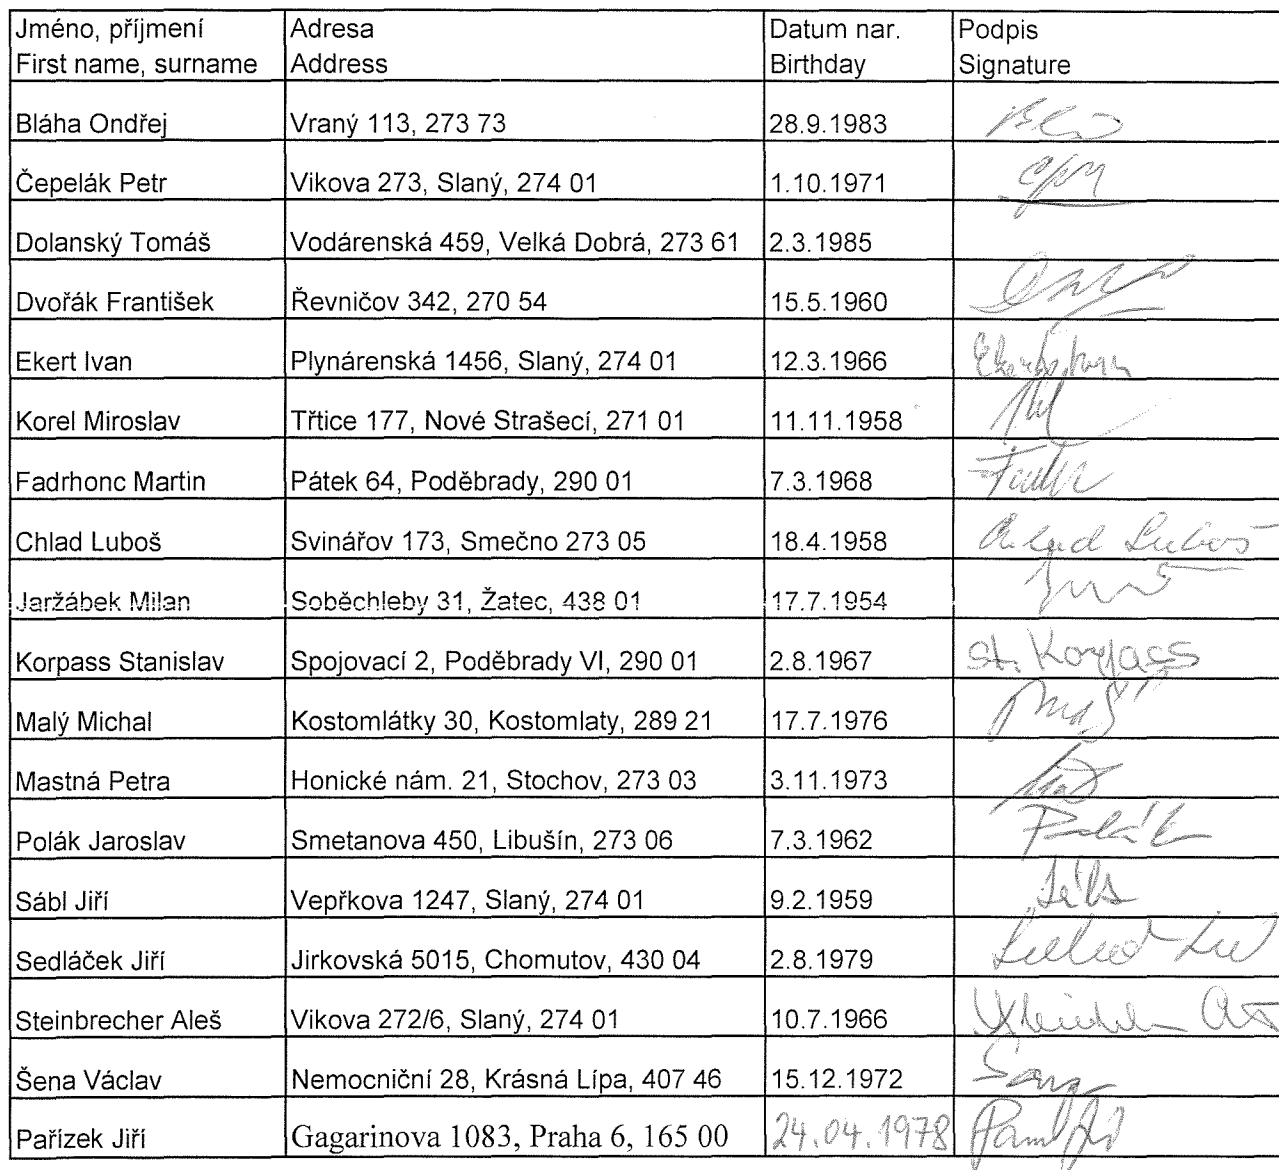 Jméno, příjmení Adresa Datum nar. Podpis
First name, surname Address Birthday Signature
Bláha Ondřej Vraný 113, 273 73 28.9.1983
Čepelák Petr Vikova 273, Slaný, 274 01 1.10.1971
Dolanský Tomáš Vodárenská 459, Velká Dobrá, 273 61 2.3.1985
Dvořák František Řevničov 342, 270 54 15.5.1960
Ekert Ivan Plynárenská 1456, Slaný, 274 01 12.3.1966
Korel Miroslav Třtice 177, Nové Strašecí, 271 01 11.11.1958
Fadrhonc Martin Pátek 64, Poděbrady, 290 01 7.3.1968
Chlad Luboš Svinářov 173, Smečno 273 05 18.4.1958 Chlad Luboš
Jaržábek Milan Soběchleby 31, Žatec, 438 01 17.7.1954
Korpass Stanislav Spojovací 2, Poděbrady VI, 290 01 2.8.1967 St. Korpass
Malý Michal Kostomlátky 30, Kostomlaty, 289 21 17.7.1976
Mastná Petra Honické nám. 21, Stochov, 273 03 3.11.1973
Polák Jaroslav Smetanova 450, Libušín, 273 06 7.3.1962 Polák
Sábl Jiří Vepřkova 1247, Slaný, 274 01 9.2.1959
Sedláček Jiří Jirkovská 5015, Chomutov, 430 04 2.8.1979
Steinbrecher Aleš Vikova 272/6, Slaný, 274 01 10.7.1966
Šena Václav Nemocniční 28, Krásná Lípa, 407 46 15.12.1972
Pařízek Jiří Gagarinova 1083, Praha 6, 165 00 24.04.1978